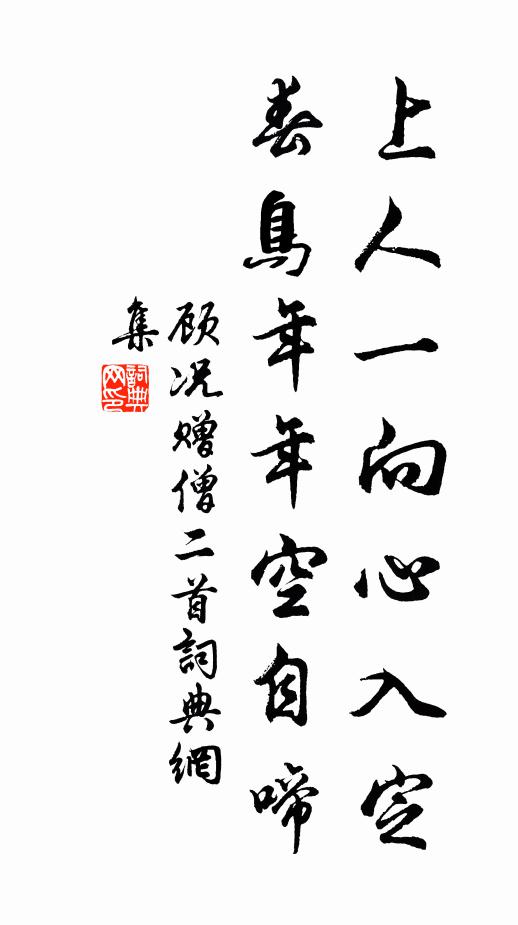 上人一向心入定
春鳥年年空自啼
顾况赠僧二首詞典網
集
詞典
网印